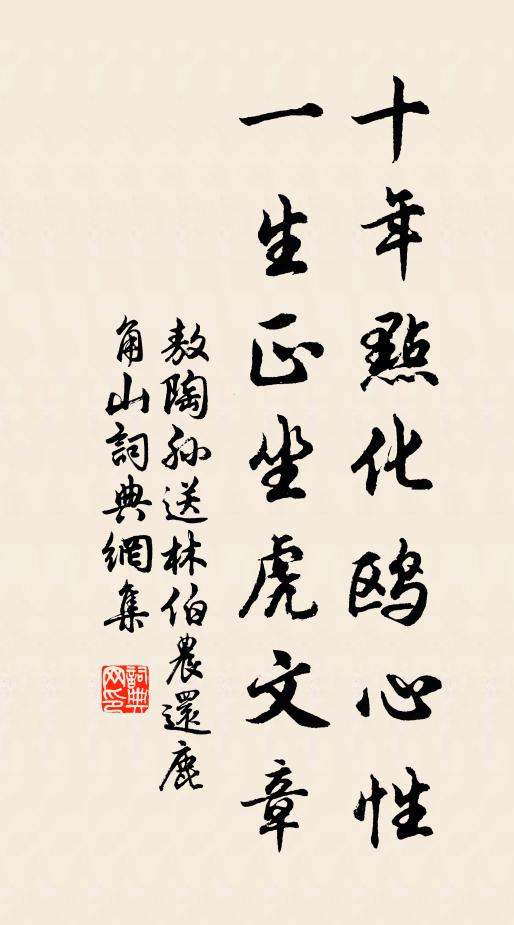 十年點化鸥心性
一生正坐虎文章
敖陶孙送林伯農還鹿
角山詞典網集
詞典网印